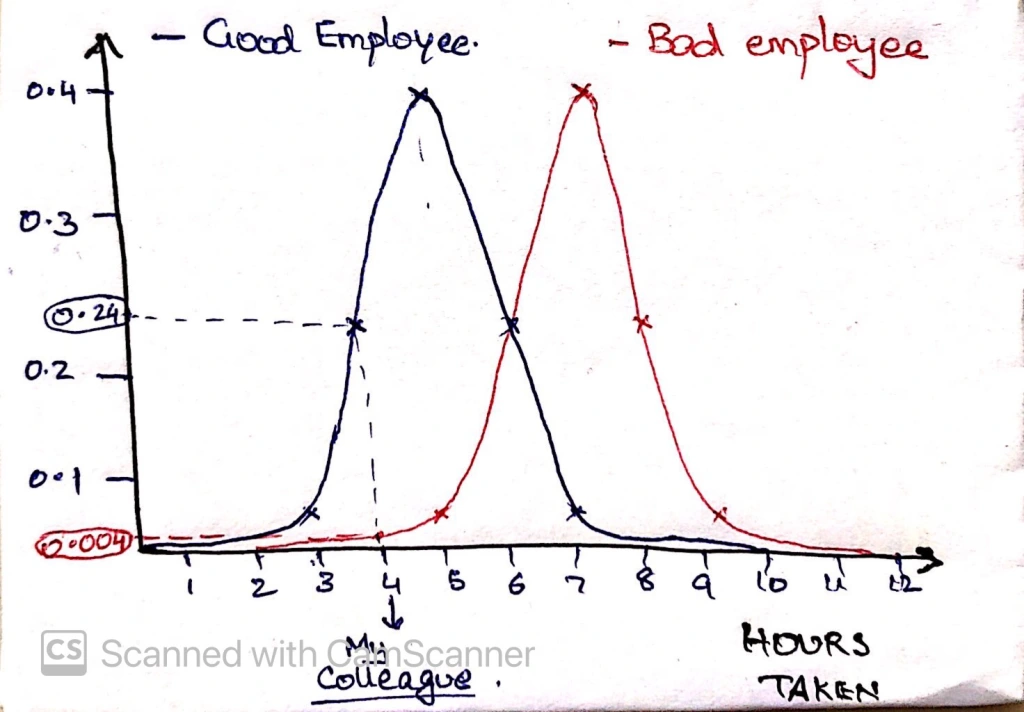 — Good Employee.
- Bad employee
0.4
0.3
0.24
0.2
0.1
0.004
1 2 3 4 5 6 7 8 9 10 11 12
My
Colleague.
HOURS
TAKEN
CS Scanned with CamScanner